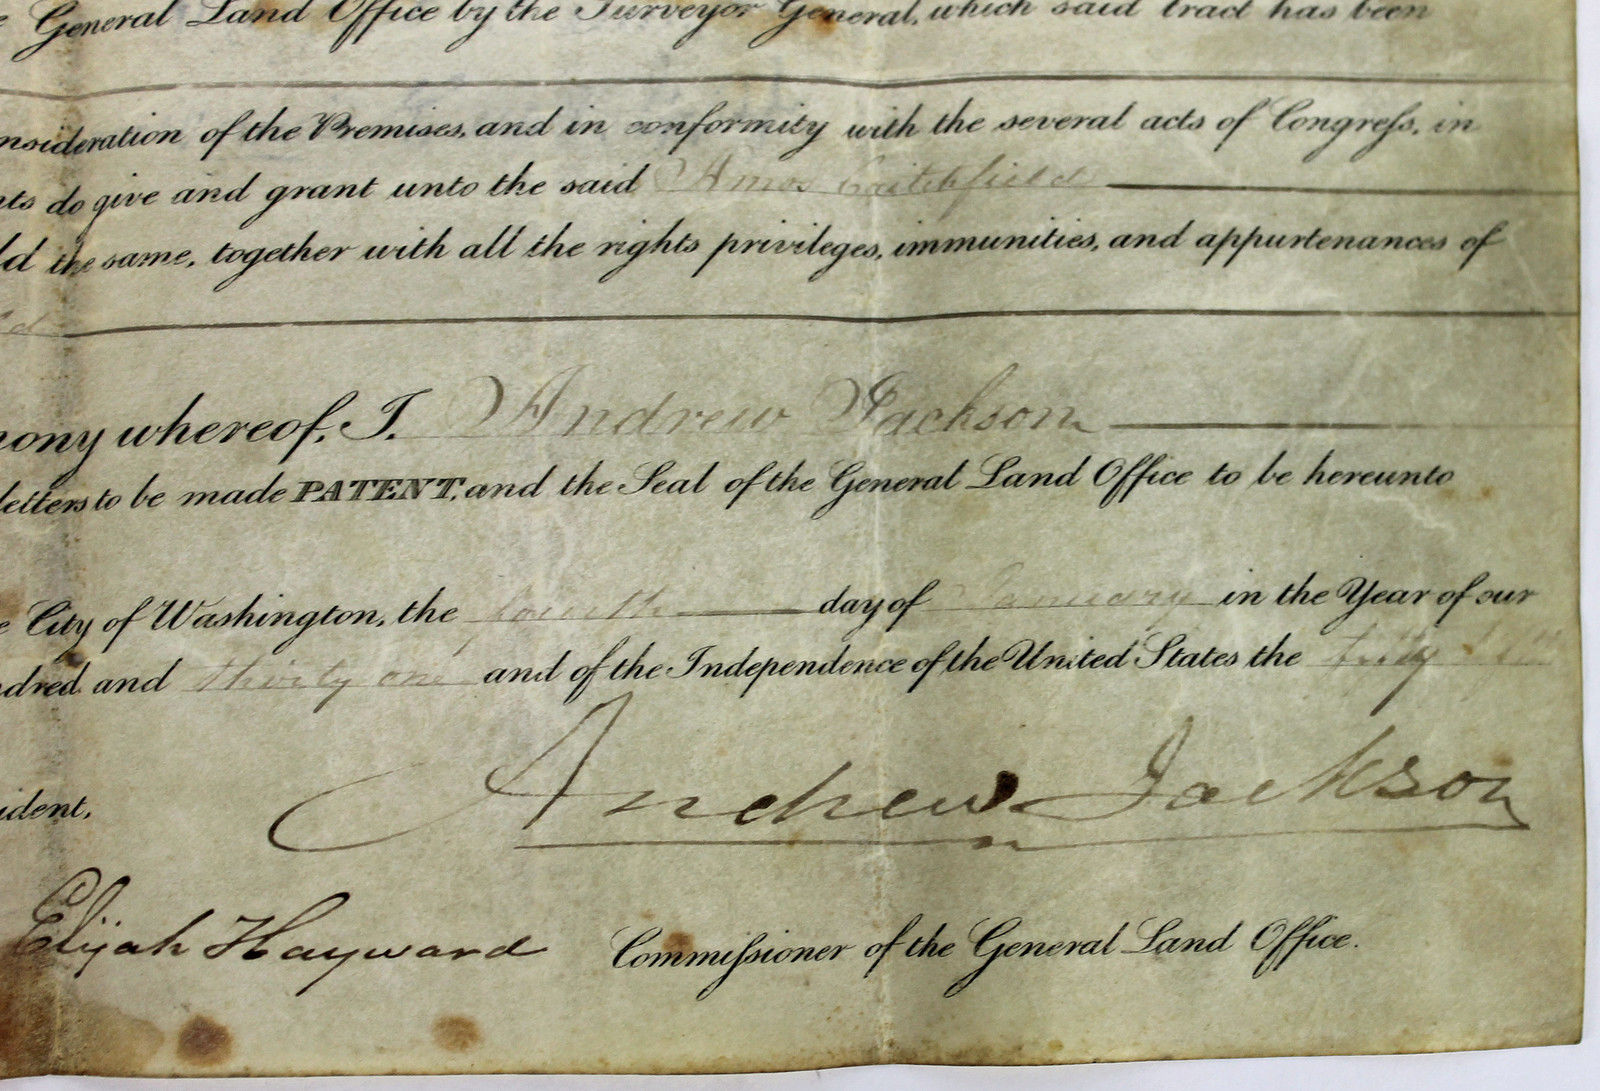 General Land Office by the Surveyor General, which said tract has been
nsideration of the Premises, and in conformity with the several acts of Congreſs, in
nts do give and grant unto the said Amos
ld the same, together with all the rights privileges, immunities, and appurtenances of
mony whereof, I, Andrew Jackson
letters to be made PATENT, and the Seal of the General Land Office to be hereunto
e City of Washington, the fourth day of January in the Year of our
ndred and thirty one and of the Independence of the United States the fifty
ident,
Andrew Jackson
Elijah Hayward Commiſsioner of the General Land Office.